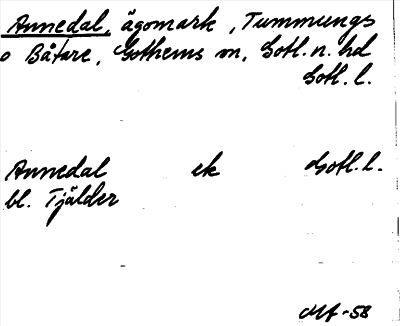 Annedal, ägomark, Tummungs
o Båtare, Gothems sn, Gotl. n. hd
Gotl. l.
Annedal ek Gotl. l.
bl. Tjälder
-58